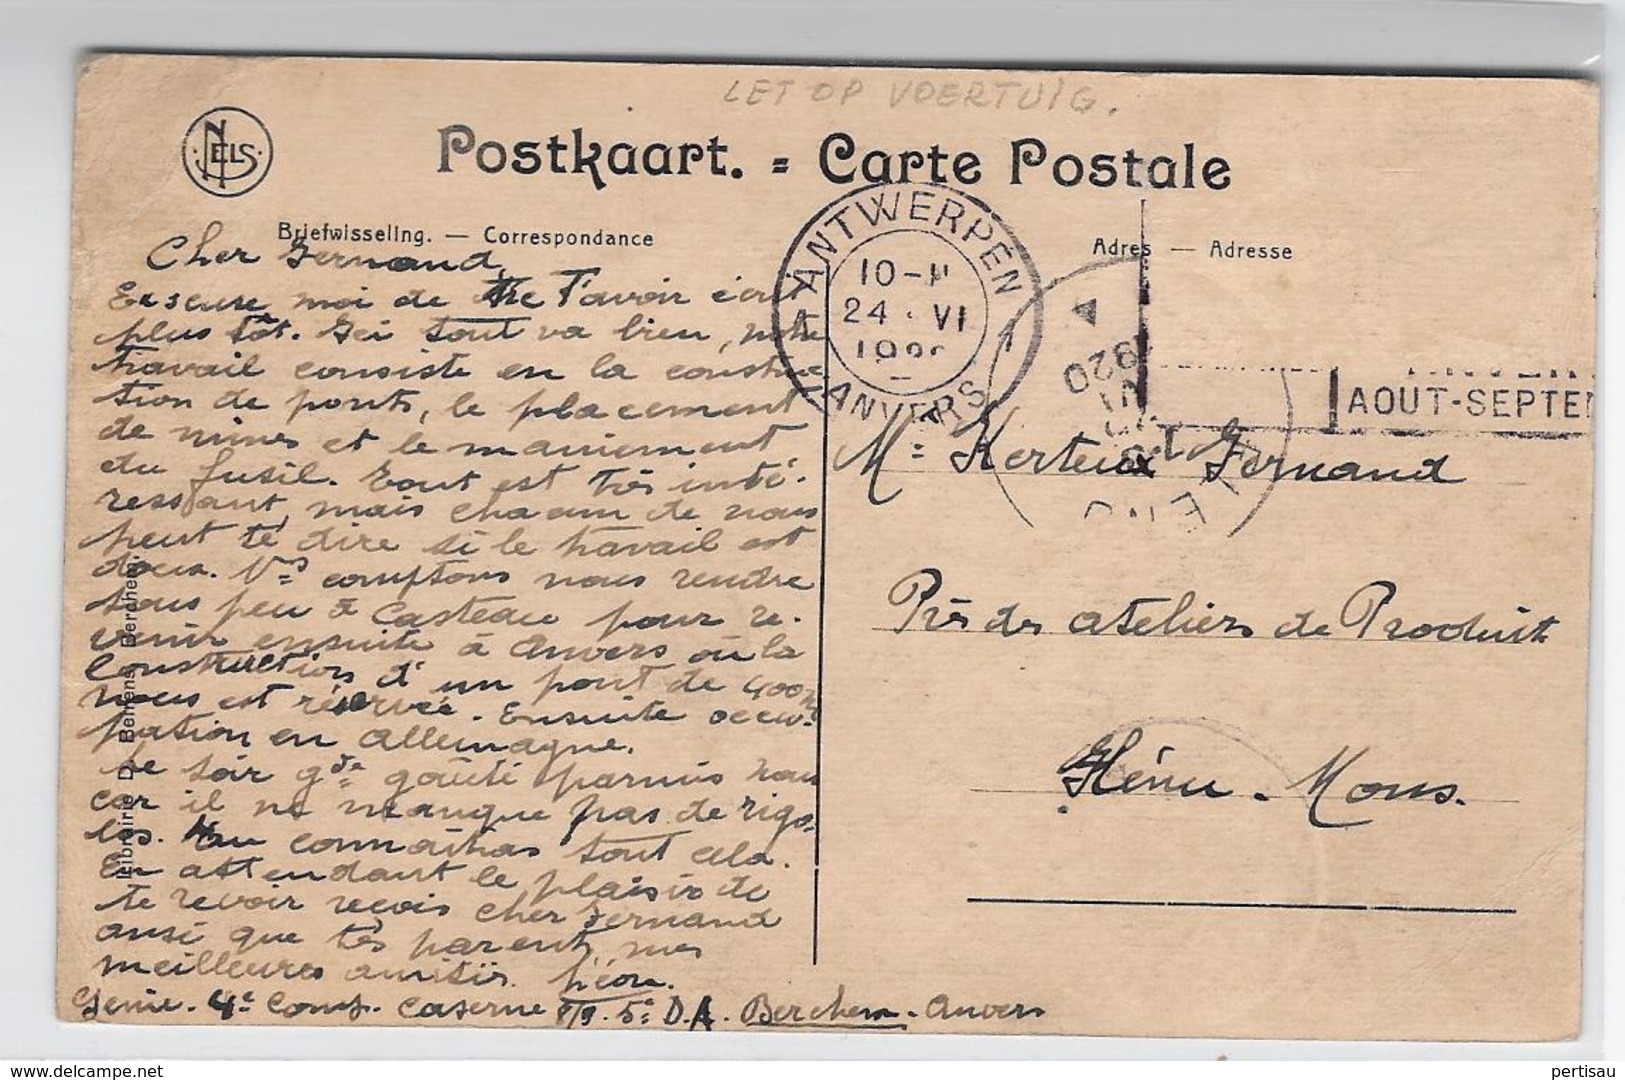 LET OP VOERTUIG.
NELS
Postkaart. = Carte Postale
Briefwisseling. — Correspondance
Adres — Adresse
ANTWERPEN
10-
24 · VI
ANVERS
1920
AOUT-SEPTE
Cher Fernand,
Excuse moi de ne t'avoir écrit
plus tôt. Ici tout va bien, notre
travail consiste en la construc
tion de ponts, le placement
de mines et le maniement
du fusil. Tout est très inté-
ressant, mais chacun de nous
peut te dire si le travail est
doux. Ns comptons nous rendre
sous peu à Casteau pour re-
venir ensuite à Anvers où la
Construction d'un pont de 400m
nous est réservée. Ensuite occu-
pation en Allemagne.
Le soir gde gaïeté parmis nous
car il ne manque pas de rigo-
los. Tu connaîtras tout cela.
En attendant le plaisir de
te revoir reçois cher Fernand
ansi que tes parents, mes
meilleures amitiés. Léon.
Génie. 4e Comp. Caserne 8/9. 5e D.A. Berchem. Anvers
Mr Herteux Fernand
Près des ateliers de Produits
Flénu - Mons.
Librairie D. Behrens, Berchem
pertisau